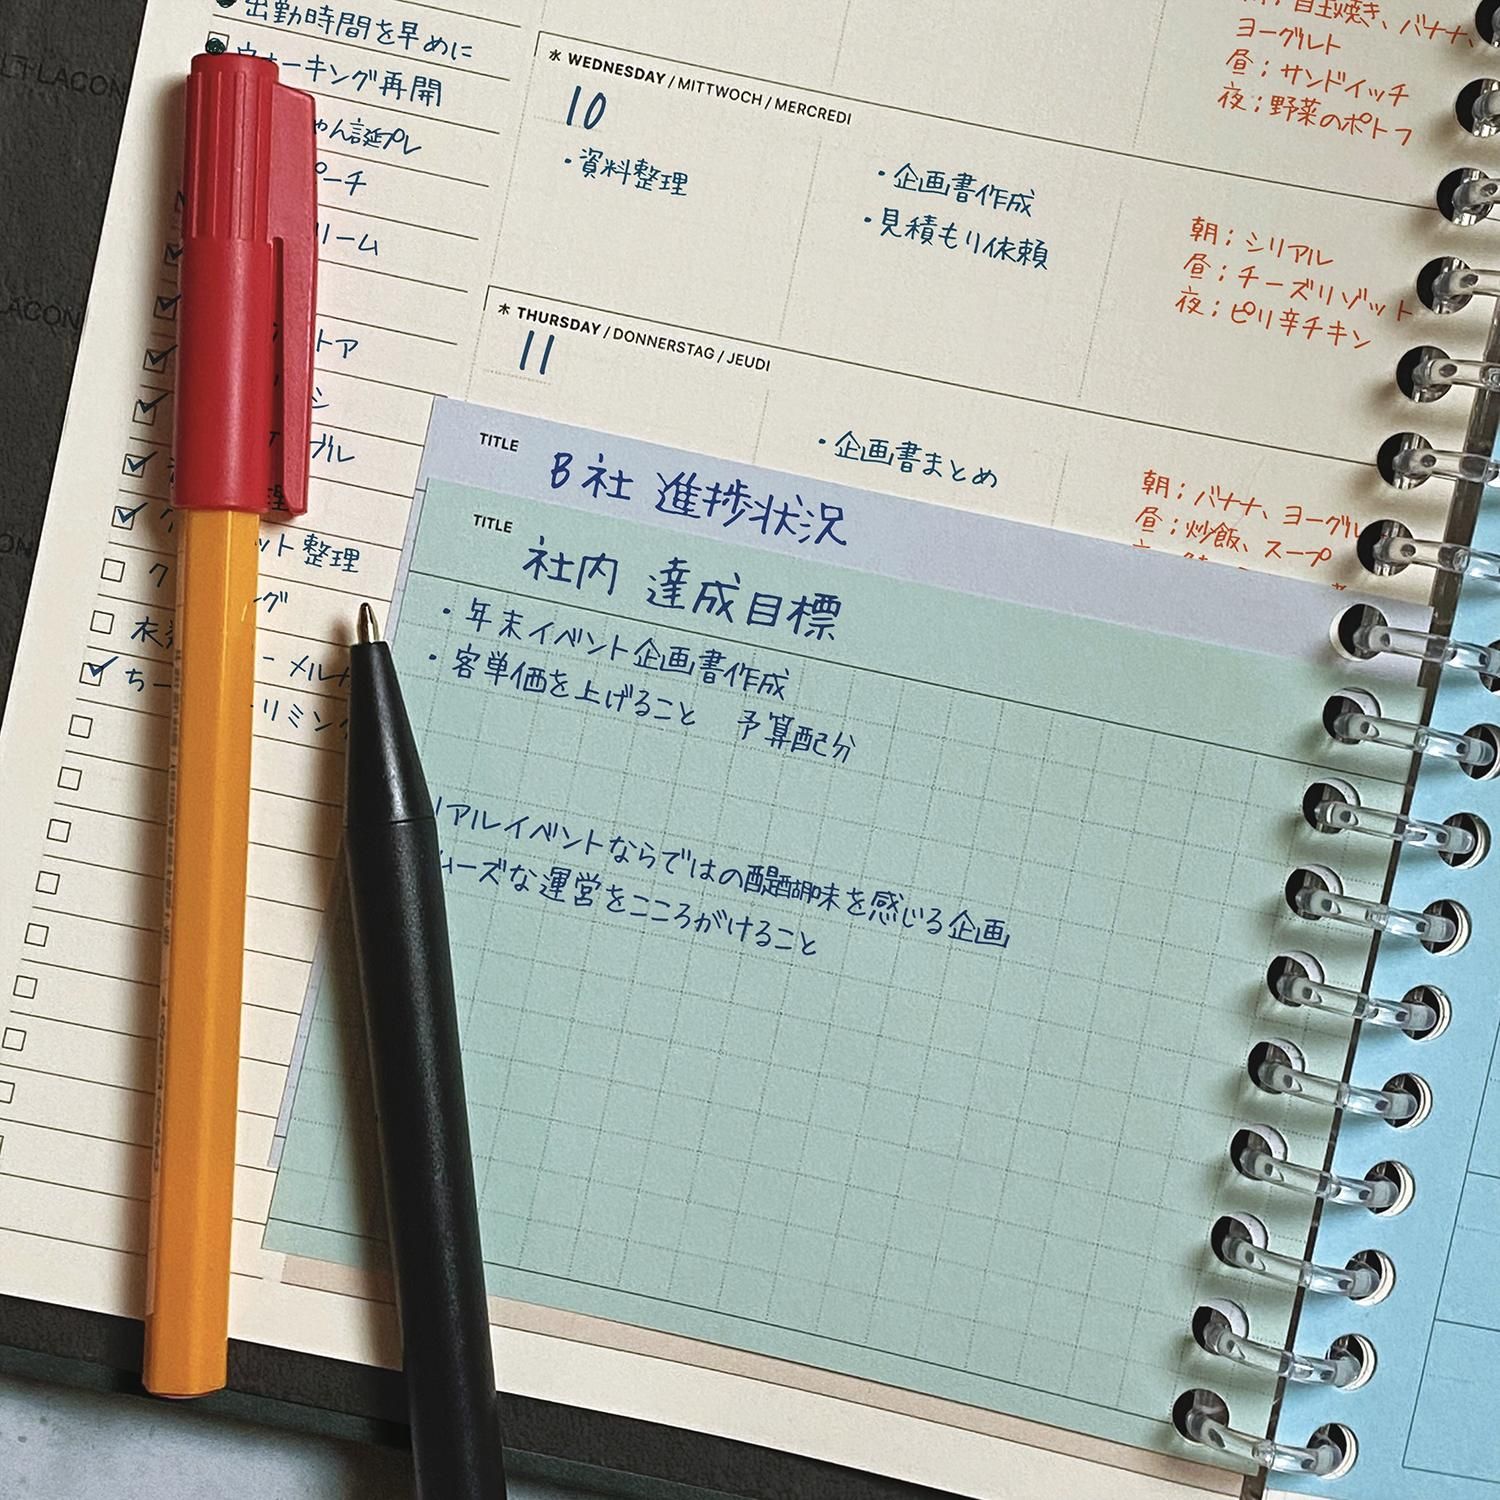 出勤時間を早めに
ウォーキング再開
ゃん誕プレ
ポーチ
リーム
トア
シ
ブル
理
ット整理
ク
グ
衣
ー メルカ
ちー
リミング
水 WEDNESDAY / MITTWOCH / MERCREDI
10
・資料整理
・企画書作成
・見積もり依頼
朝；目玉焼き、バナナ、
ヨーグルト
昼；サンドイッチ
夜；野菜のポトフ
朝；シリアル
昼；チーズリゾット
夜；ピリ辛チキン
木 THURSDAY / DONNERSTAG / JEUDI
11
・企画書まとめ
朝；バナナ、ヨーグル
昼；炒飯、スープ
TITLE B社 進捗状況
TITLE 社内 達成目標
・年末イベント企画書作成
・客単価を上げること 予算配分
リアルイベントならではの醍醐味を感じる企画
ムーズな運営をこころがけること
LACON
LACON